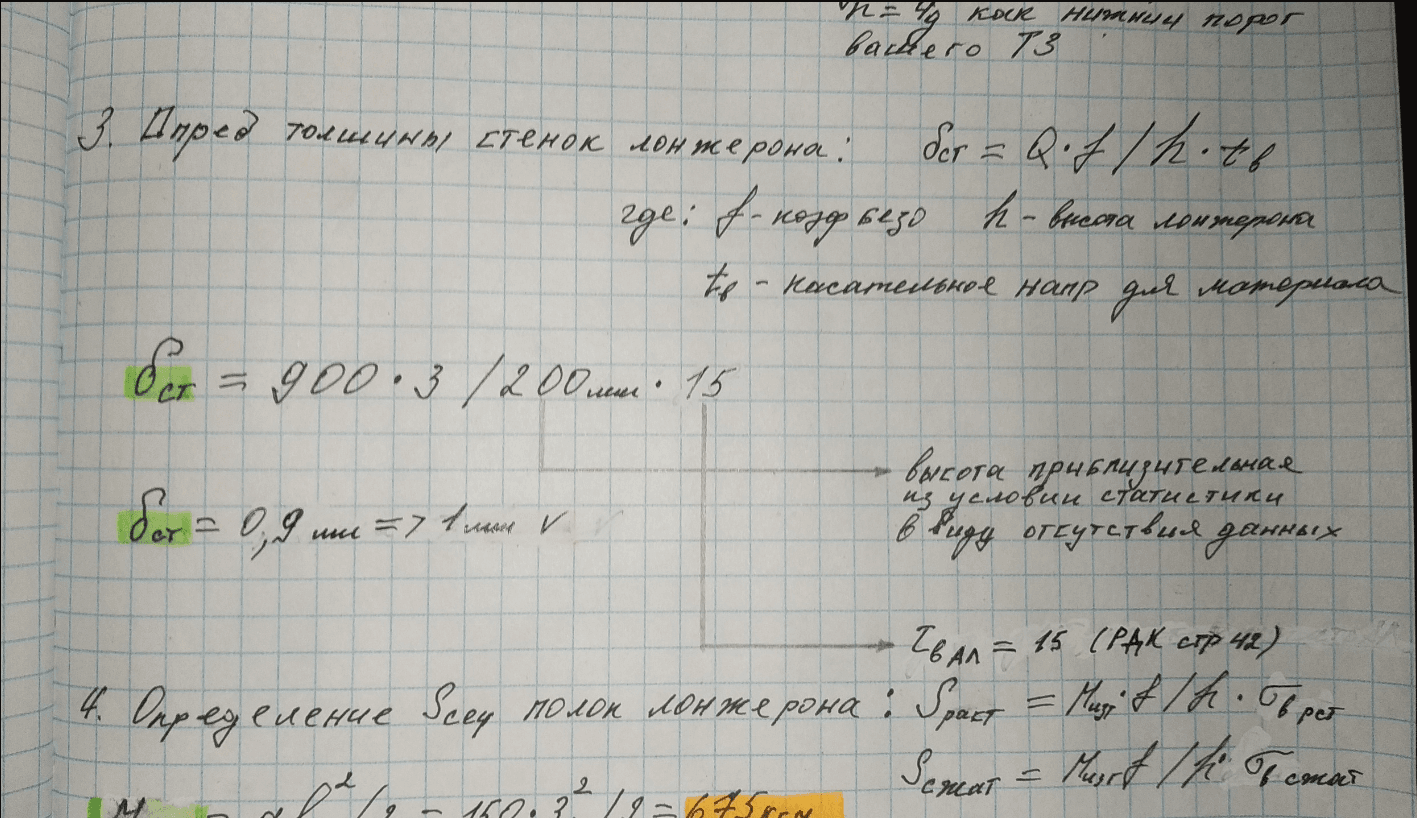 n = 4g как нижний порог
вашего ТЗ
3. Опред толшины стенок лонжерона: δст = Q·f / h·tв
где: f - коэф безо h - высота лонжерона
tв - касательное напр для материала
δст = 900·3 / 200мм · 15
высота приблизительная
из условии статистики
в виду отсутствия данных
δст = 0,9 мм => 1 мм ∨
τв АЛ = 15 (РДК стр 42)
4. Определение Sсеч полок лонжерона: Sраст = Mизг·f / h · σв рст
Sсжат = Mизг f / h · σв сжат
= 150·3² / 2 = 675 кгм